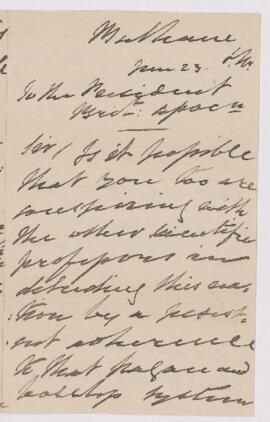 To the President
Brit: Assocn
Sir/ Is it possible
that you too are
conspiring with
the other scientific
professors in
deluding this na-
tion by a persist-
ent adherence
to that pagan and
baseless system